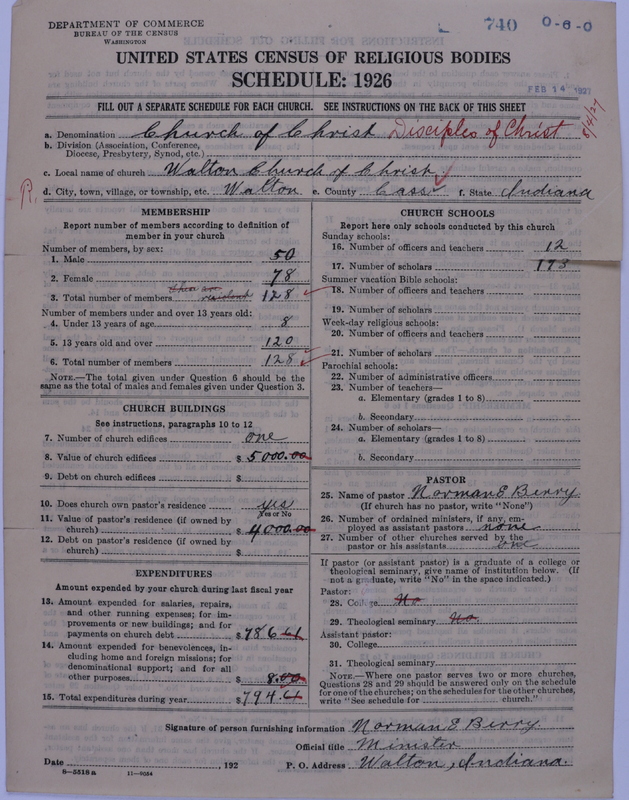 DEPARTMENT OF COMMERCE
BUREAU OF THE CENSUS
WASHINGTON
740 0-6-0
UNITED STATES CENSUS OF RELIGIOUS BODIES
SCHEDULE: 1926
FEB 14 1927
FILL OUT A SEPARATE SCHEDULE FOR EACH CHURCH. SEE INSTRUCTIONS ON THE BACK OF THIS SHEET
a. Denomination Church of Christ Disciples of Christ
b. Division (Association, Conference,
Diocese, Presbytery, Synod, etc.)
c. Local name of church Walton Church of Christ.
d. City, town, village, or township, etc. Walton e. County Cass f. State Indiana
R.
MEMBERSHIP
Report number of members according to definition of
member in your church
Number of members, by sex:
1. Male 50
2. Female 78
3. Total number of members 128
Number of members under and over 13 years old:
4. Under 13 years of age 8
5. 13 years old and over 120
6. Total number of members 128
NOTE.—The total given under Question 6 should be the
same as the total of males and females given under Question 3.
CHURCH BUILDINGS
See instructions, paragraphs 10 to 12
7. Number of church edifices one
8. Value of church edifices $ 5000.00
9. Debt on church edifices $
10. Does church own pastor's residence yes
Yes or No
11. Value of pastor's residence (if owned by
church) $ 4000.00
12. Debt on pastor's residence (if owned by
church) $
EXPENDITURES
Amount expended by your church during last fiscal year
13. Amount expended for salaries, repairs,
and other running expenses; for im-
provements or new buildings; and for
payments on church debt $ 786.61
14. Amount expended for benevolences, in-
cluding home and foreign missions; for
denominational support; and for all
other purposes $ 8.00
15. Total expenditures during year $ 794.61
CHURCH SCHOOLS
Report here only schools conducted by this church
Sunday schools:
16. Number of officers and teachers 12
17. Number of scholars 173
Summer vacation Bible schools:
18. Number of officers and teachers
19. Number of scholars
Week-day religious schools:
20. Number of officers and teachers
21. Number of scholars
Parochial schools:
22. Number of administrative officers
23. Number of teachers—
a. Elementary (grades 1 to 8)
b. Secondary
24. Number of scholars—
a. Elementary (grades 1 to 8)
b. Secondary
PASTOR
25. Name of pastor Norman E Berry
(If church has no pastor, write "None")
26. Number of ordained ministers, if any, em-
ployed as assistant pastors none
27. Number of other churches served by the
pastor or his assistants one
If pastor (or assistant pastor) is a graduate of a college or
theological seminary, give name of institution below. (If
not a graduate, write "No" in the space indicated.)
Pastor:
28. College No
29. Theological seminary No.
Assistant pastor:
30. College
31. Theological seminary
NOTE.—Where one pastor serves two or more churches,
Questions 28 and 29 should be answered only on the schedule
for one of the churches; on the schedules for the other churches,
write "See schedule for church."
Signature of person furnishing information Norman E Berry
Official title Minister
Date , 192 P. O. Address Walton, Indiana.
8-5518a 11-9054